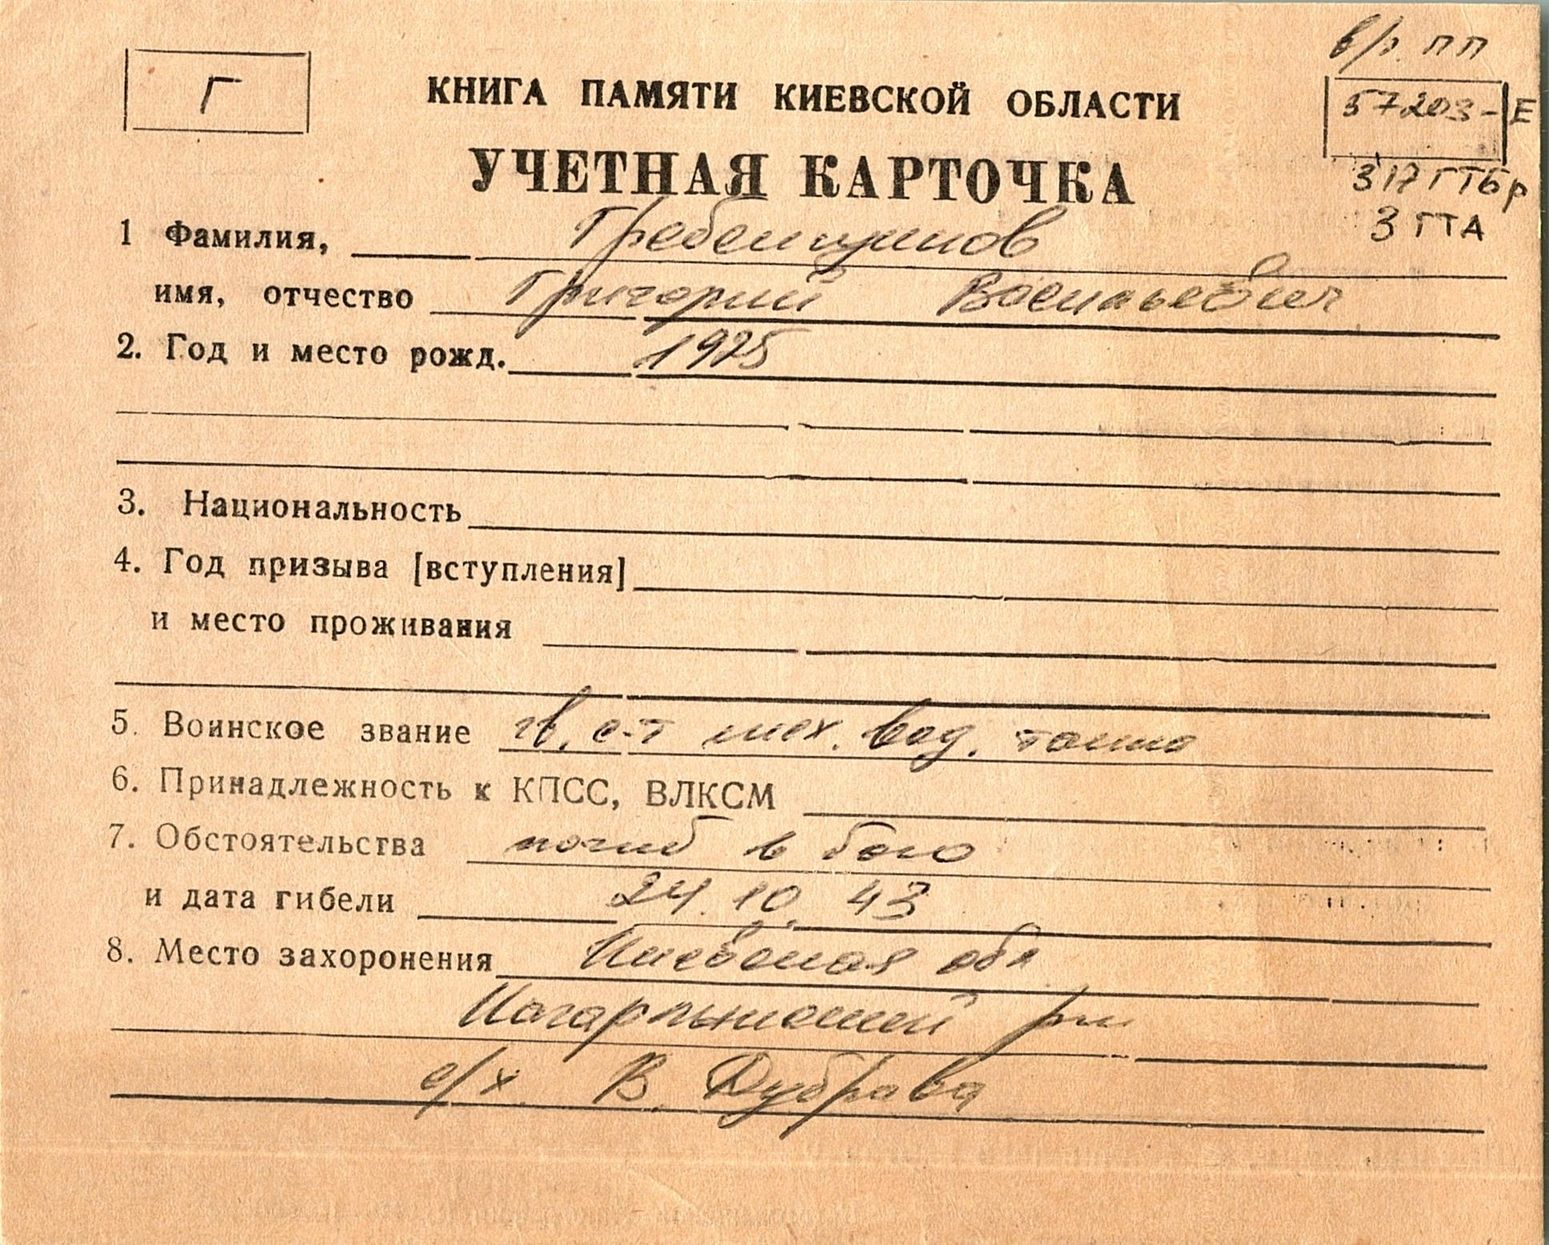 в/ч. пп
Г
КНИГА ПАМЯТИ КИЕВСКОЙ ОБЛАСТИ
57203-Е
УЧЕТНАЯ КАРТОЧКА
317 ГТБр
3 ГТА
1 Фамилия, Гребенщиков
имя, отчество Григорий Васильевич
2. Год и место рожд. 1925
3. Национальность
4. Год призыва [вступления]
и место проживания
5. Воинское звание гв. с-т мех. вод. танка
6. Принадлежность к КПСС, ВЛКСМ
7. Обстоятельства погиб в бою
и дата гибели 24.10.43
8. Место захоронения Киевская обл
Кагарлыкский рн
с/х В. Дубрава